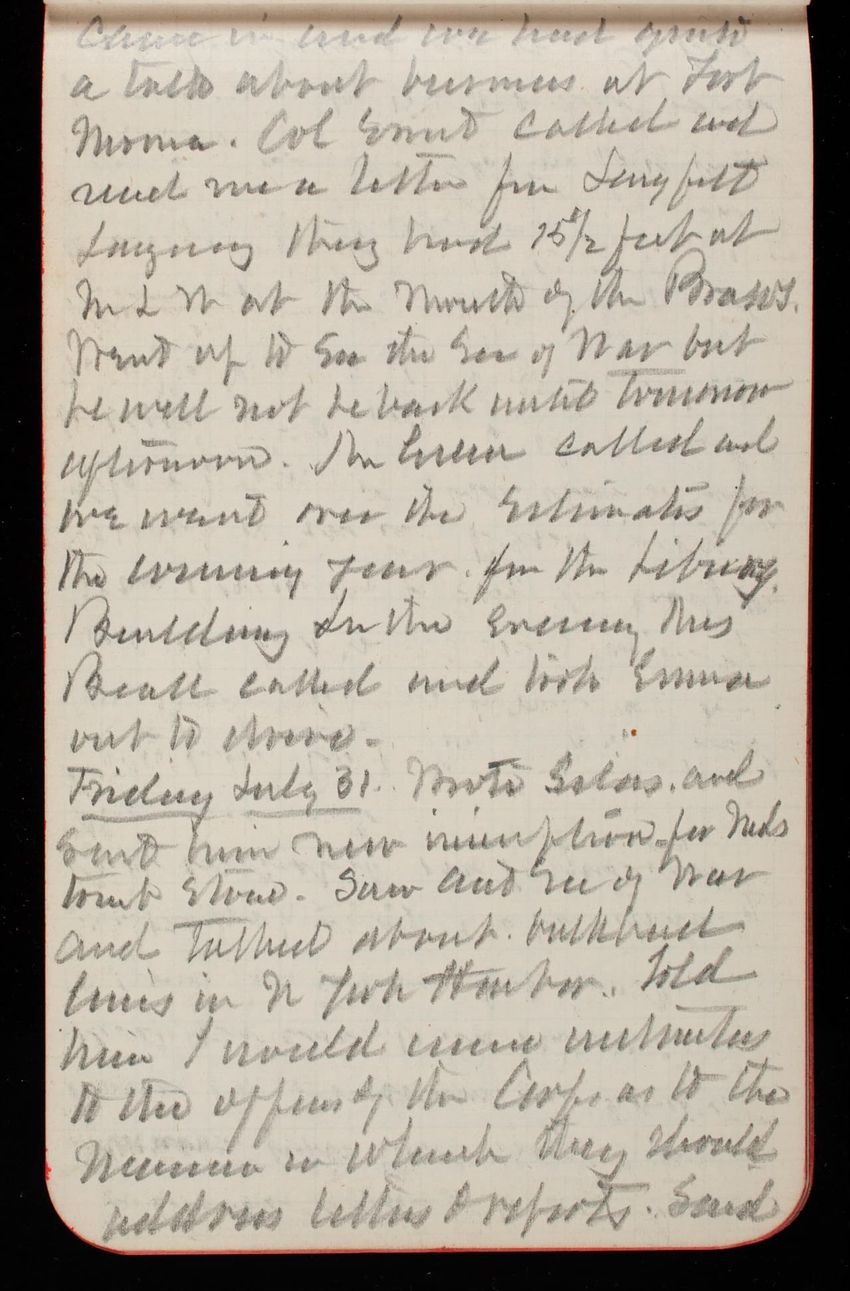 Came in and we had quite
a talk about business at Fort
Monroe. Col Ernst called and
read me a letter from
saying they had 15 1/2 feet at
M L W at the Mouth of the Brasos.
Went up to See the Sec of War but
he will not be back until tomorrow
afternoon. Mr Green called and
we went over the Estimates for
the coming year. for the Library
Building In the Evening Miss
Beall called and took Emma
out to drive.
Friday July 31. Wrote Silas. and
Sent him new inscription for Neds
tomb Stone. Saw Actg Sec of War
and Talked about bulkhead
lines in N York Harbor. Told
him I would issue instructions
to the officers of the Corps as to the
Manner in which they should
address letters & reports. Said